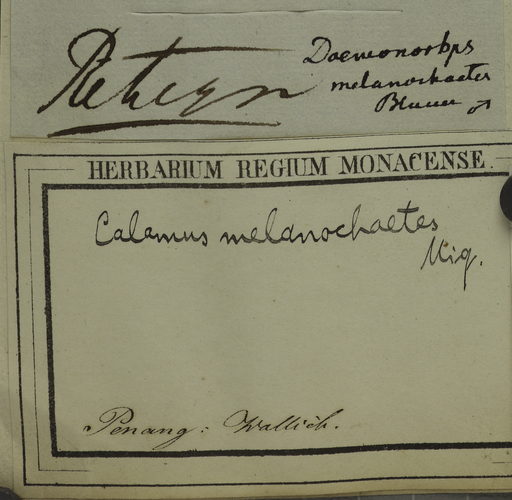 Daemonorhps
melanochaetes
Blume ♂
HERBARIUM REGIUM MONACENSE.
Calamus melanochaetes
Miq.
Penang: Wallich.